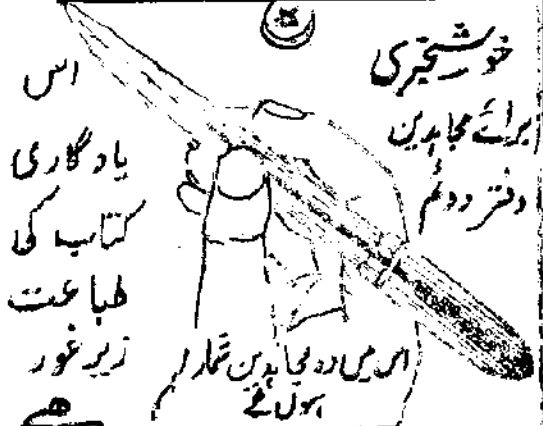 خوشخبری
برائے مجاہدین
دفتر دوئم
اس
یادگاری
کتاب کی
طباعت
زیر غور
ہے
اس میں وہ مجاہدین شمار
ہوں گے